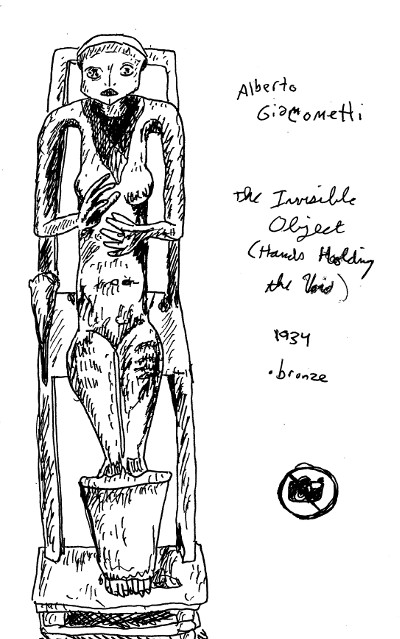 Alberto
Giacometti
The Invisible
Object
(Hands Holding
the Void)
1934
.bronze